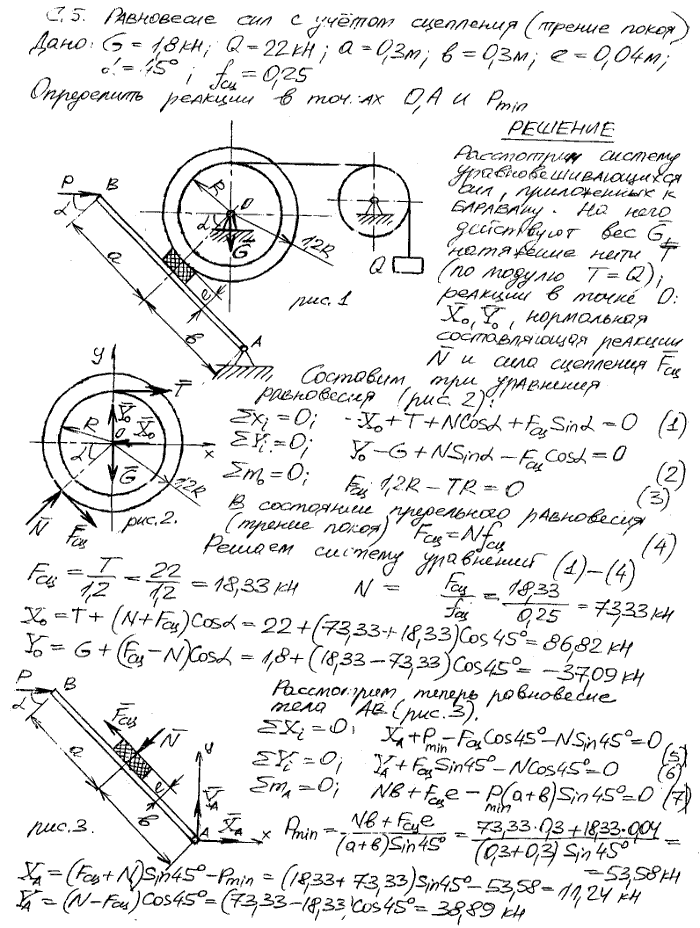 С.5. Равновесие сил с учётом сцепления (трение покоя)
Дано: G = 1,8 кН; Q = 22 кН; a = 0,3 м; в = 0,3 м; e = 0,04 м;
α = 45°; fсц = 0,25
Определить реакции в точках O, A и Pmin
РЕШЕНИЕ
Рассмотрим систему
уравновешивающихся
сил, приложенных к
барабану. На него
действуют вес G,
натяжение нити T
(по модулю T = Q);
реакции в точке O:
X̄o, Ȳo, нормальная
составляющая реакции
N̄ и сила сцепления F̄сц
P B
α
R
O
α
G
1,2R
Q
a
e
в
A
рис. 1
Составим три уравнения
равновесия (рис. 2):
ΣXi = 0; -Xo + T + NCosα + FсцSinα = 0 (1)
ΣYi = 0; Yo - G + NSinα - FсцCosα = 0
(2)
Σmo = 0; Fсц 1,2R - TR = 0
(3)
y
T̄
Ȳo
X̄o
R
O
x
α
Ḡ
1,2R
N̄
F̄сц
рис. 2.
В состоянии предельного равновесия
(трение покоя) Fсц = Nfсц
(4)
Решаем систему уравнений (1)-(4)
Fсц = T/1,2 = 22/1,2 = 18,33 кН N = Fсц/fсц = 18,33/0,25 = 73,33 кН
Xo = T + (N + Fсц)Cosα = 22 + (73,33 + 18,33)Cos45° = 86,82 кН
Yo = G + (Fсц - N)Cosα = 1,8 + (18,33 - 73,33)Cos45° = -37,09 кН
Рассмотрим теперь равновесие
тела AB (рис. 3).
ΣXi = 0; XA + Pmin - FсцCos45° - NSin45° = 0
(5)
ΣYi = 0; YA + FсцSin45° - NCos45° = 0
(6)
ΣmA = 0; Nв + Fсцe - Pmin(a+в)Sin45° = 0 (7)
P B
α
F̄сц
N̄
a
e
в
y
ȲA
X̄A
A x
рис. 3.
Pmin = (Nв + Fсцe)/((a+в)Sin45°) = (73,33·0,3 + 18,33·0,04)/((0,3+0,3)Sin45°) =
= 53,58 кН
XA = (Fсц + N)Sin45° - Pmin = (18,33 + 73,33)Sin45° - 53,58 = 11,24 кН
YA = (N - Fсц)Cos45° = (73,33 - 18,33)Cos45° = 38,89 кН